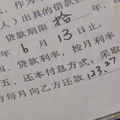 人）出具的借款借
贷款期限拾
年 6 月 13 日止.
、贷款利率，按月利率
五、还本付息方式，采取
方每月向乙方还款123.27